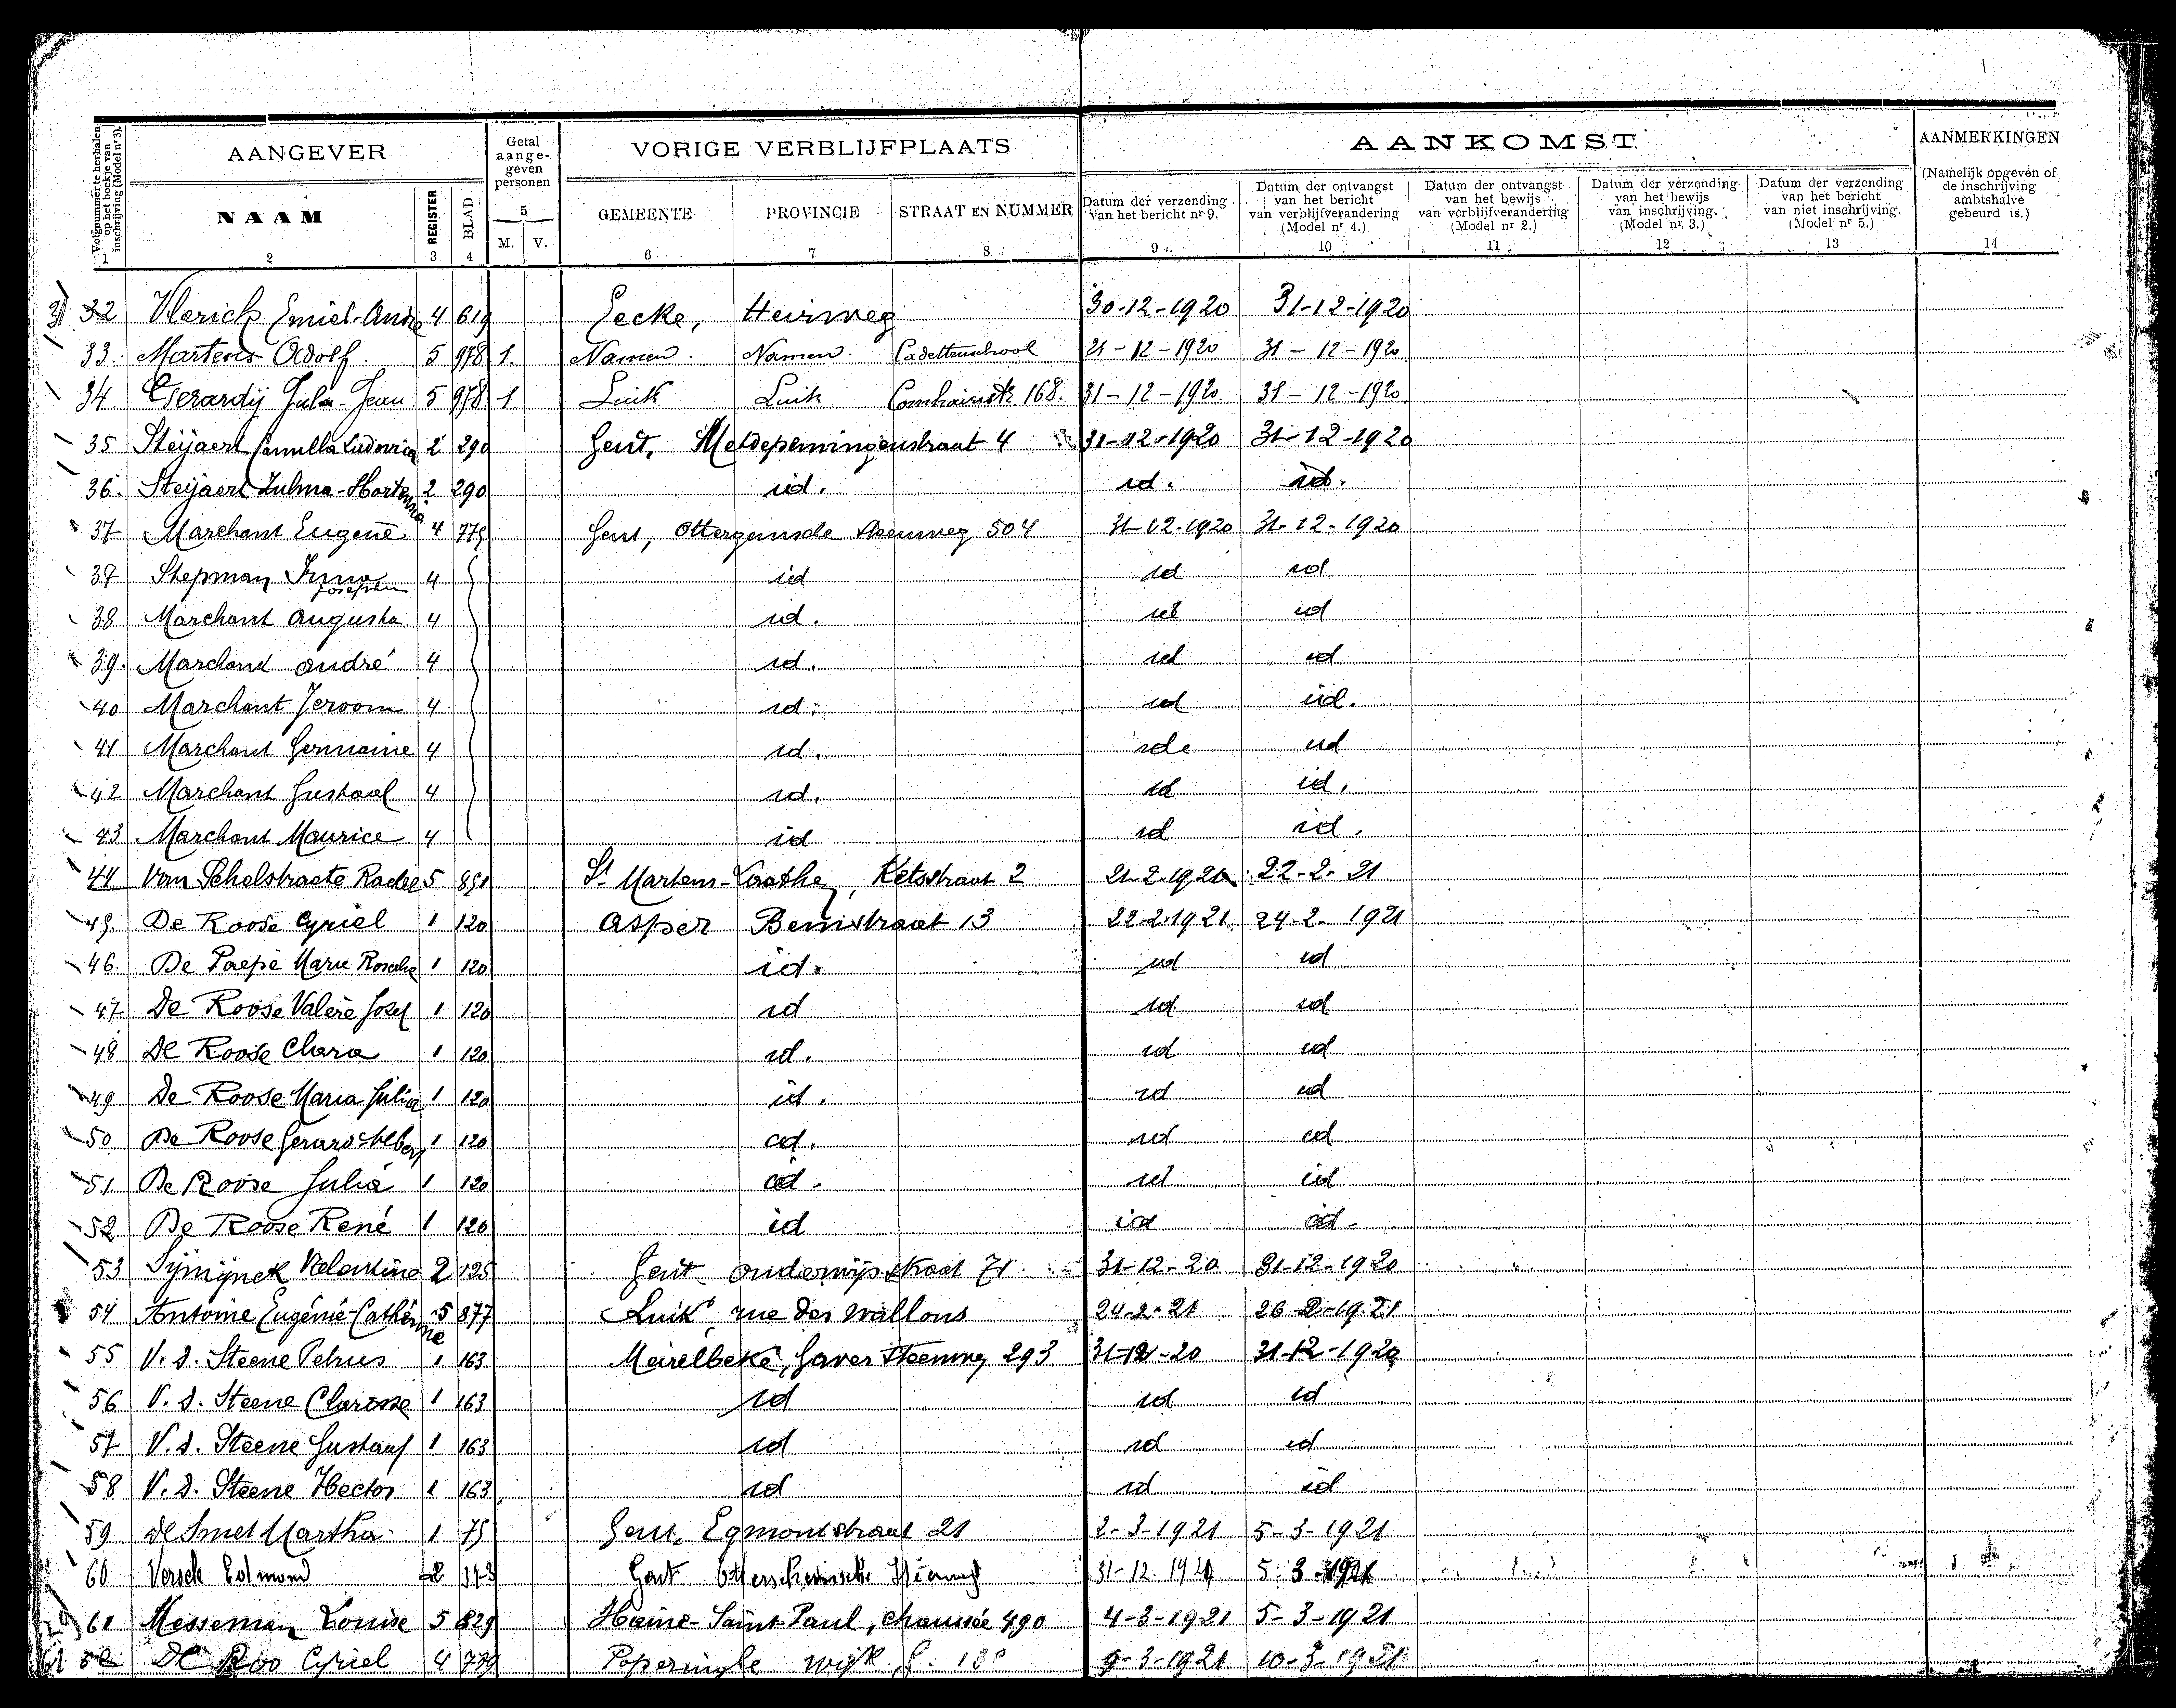 AANGEVER
Getal aange- geven personen
VORIGE VERBLIJFPLAATS
AANKOMST
AANMERKINGEN
Volgnummer te herhalen op het boekje van inschrijving (Model nr 3).
NAAM
REGISTER
BLAD
5
M. V.
GEMEENTE
PROVINCIE
STRAAT EN NUMMER
Datum der verzending van het bericht nr 9.
Datum der ontvangst van het bericht van verblijfverandering (Model nr 4.)
Datum der ontvangst van het bewijs van verblijfverandering (Model nr 2.)
Datum der verzending van het bewijs van inschrijving. (Model nr 3.)
Datum der verzending van het bericht van niet inschrijving. (Model nr 5.)
(Namelijk opgeven of de inschrijving ambtshalve gebeurd is.)
1 2 3 4 6 7 8 9 10 11 12 13 14
31 32 Vlerick Emiel-André 4 619 Eecke, Heirweg 30-12-1920 31-12-1920
33. Martens Adolf. 5 978 1. Namen. Namen. Cadettenschool 21-12-1920 31-12-1920
34. Gerardij Jean 5 978 1. Luik Luik 168. 31-12-1920. 31-12-1920.
35 Steijaert Camilla Ludovica 2 290 Gent, Meldepenningenstraat 4 31-12-1920 31-12-1920
36. Steijaert Zulma-Hortensia 2 290 id. id. id.
37 Marchant Eugene 4 775 Gent, steenweg 504 31-12-1920 31-12-1920
37 Stepman Irma Josephin 4 id id id
38 Marchant Augusta 4 id. id id
39. Marchant André 4 id. id id
40 Marchant Jeroom 4 id. id id.
41 Marchant Germaine 4 id. id id
42 Marchant Gustaal 4 id. id id.
43 Marchant Maurice 4 id id id.
44 Van Schelstraete Rachel 5 851 St Martens-Laathem, Ketsstraat 2 21-2-1921 22-2-21
45. De Roose Cyriel 1 120 Asper Beinstraat 13 22-2-1921 24-2-1921
46. De Paepe Marie Rosalie 1 120 id. id id
47 De Roose Valère Josef 1 120 id id id
48 De Roose Clara 1 120 id. id id
49 De Roose Maria Julia 1 120 id. id id
50 De Roose Gerard Albert 1 120 id. id id
51. De Roose Julia 1 120 id. id id
52 De Roose René 1 120 id id id.
53 Sijnijnck Valentine 2 125 Gent onderwijsstraat 71. 31-12-20 31-12-1920
54 Antoine Eugénie-Cathérine 5 877 Luik, rue des wallons 24-2-21 26-2-19.21
55 V. d. Steene Petrus 1 163 Meirelbeke, Gaver Steenweg 293 31-12-20 31-12-1920
56 V. d. Steene Clarisse 1 163 id id id
57 V. d. Steene Gustaaf 1 163 id id id
58 V. d. Steene Hector 1 163 id id id
59 De Smet Martha 1 75 Gent, Egmontstraat 21 2-3-1921 5-3-1921
60 Edmond 2 Gent 31-12. 5-3-1921
61 Messeman Louise 5 829 Haine-Saint-Paul, chaussée 490 4-3-1921 5-3-1921
De Roo Cyriel 4 779 Poperinghe wijk 9-3-1921 10-3-1921